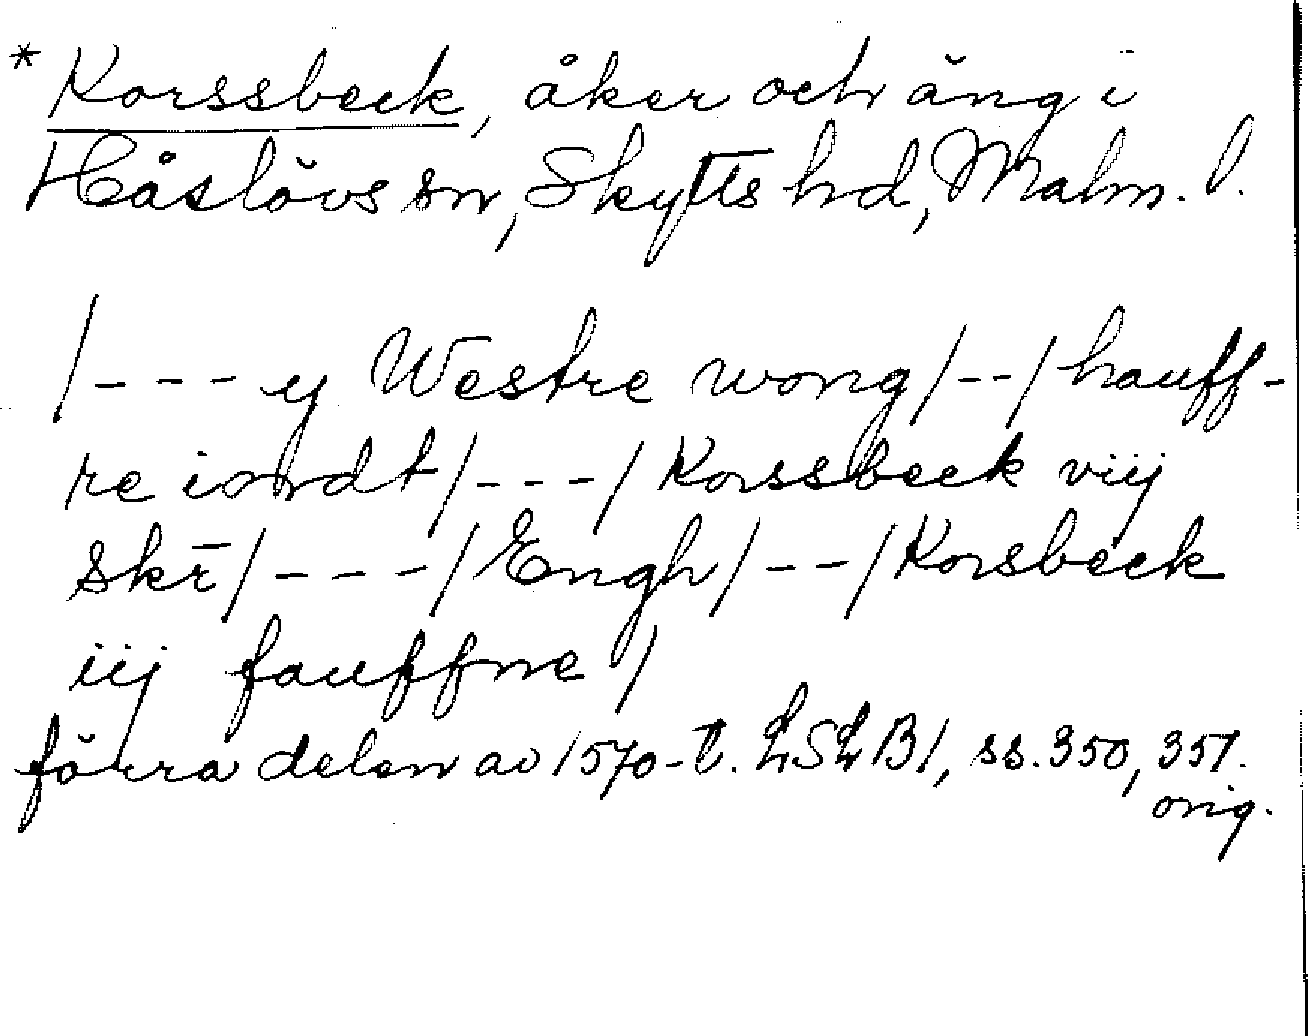 * Korssbeck, åker och äng i
Håslövs sn, Skytts hd, Malm. l.
/--- y Westre wong/--/hauff-
re iordt/---/Korssbeck viij
skr̄/---/Engh/--/Korsbeck
iij fauffne/
förra delen av 1570-t. LSLB1, ss. 350, 351.
orig.